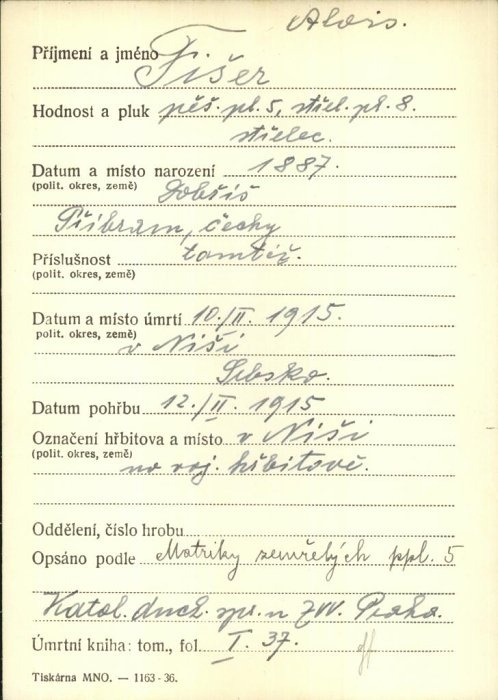 Alois.
Příjmení a jméno Fišer
Hodnost a pluk pěš. pl. 5, střel. pl. 8.
střelec.
Datum a místo narození 1887.
(polit. okres, země) Dobříš
Příbram, čechy
Příslušnost tamtéž.
(polit. okres, země)
Datum a místo úmrtí 10./II. 1915.
polit. okres, země) v Niši
Srbsko.
Datum pohřbu 12./II. 1915
Označení hřbitova a místo v Niši
(polit. okres, země)
na voj. hřbitově.
Oddělení, číslo hrobu
Opsáno podle Matriky zemřelých ppl. 5
Katol. duch. spr. u ZVV. Praha.
Úmrtní kniha: tom., fol. I. 37.
Tiskárna MNO. — 1163-36.